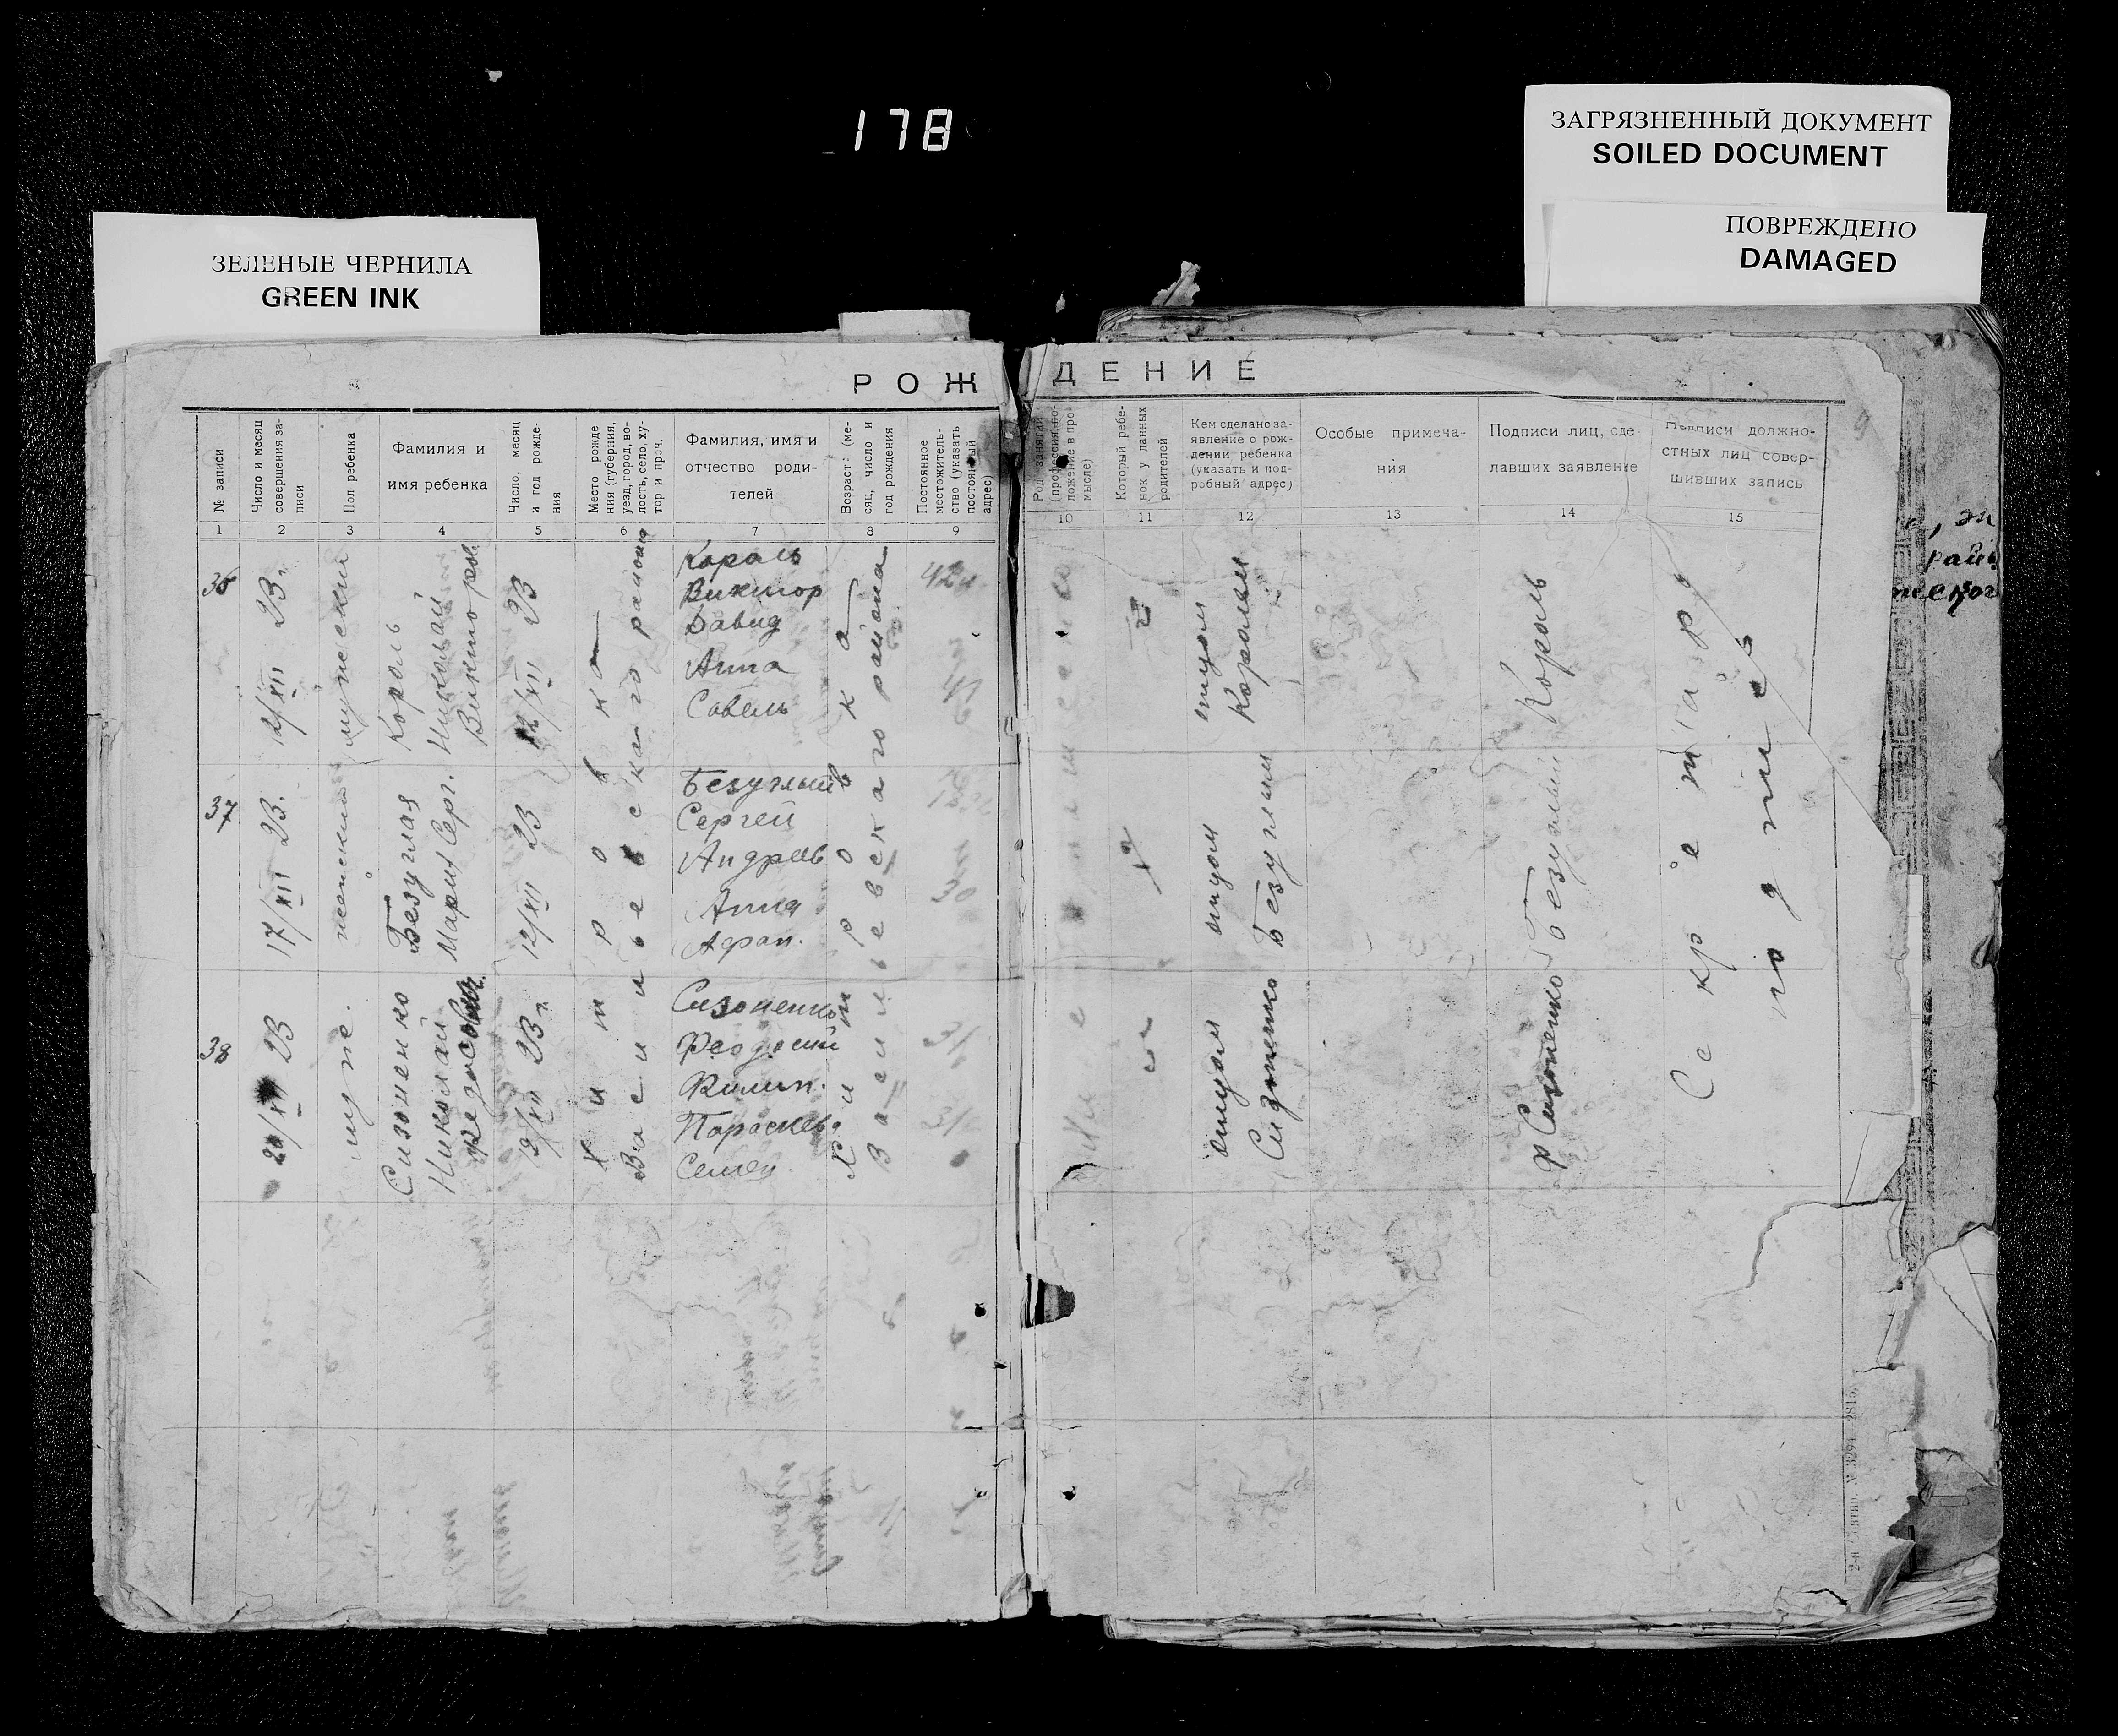 178
ЗАГРЯЗНЕННЫЙ ДОКУМЕНТ
SOILED DOCUMENT
ПОВРЕЖДЕНО
DAMAGED
ЗЕЛЕНЫЕ ЧЕРНИЛА
GREEN INK
РОЖДЕНИЕ
№ записи
Число и месяц
совершения за-
писи
Пол ребенка
Фамилия и
имя ребенка
Число, месяц
и год рожде-
ния
Место рожде
ния (губерния,
уезд, город, во-
лость, село, ху-
тор и проч.
Фамилия, имя и
отчество роди-
телей
Возраст: (ме-
сяц, число и
год рождения
Постоянное
местожитель-
ство (указать
постоянный
адрес)
Род занятий
(профессия, по-
ложение в про-
мысле)
Который ребе-
нок у данных
родителей
Кем сделано за-
явление о рож-
дении ребенка
(указать и под-
робный адрес)
Особые примеча-
ния
Подписи лиц, сде-
лавших заявление
Подписи должно-
стных лиц совер-
шивших запись
1 2 3 4 5 6 7 8 9 10 11 12 13 14 15
36
12/XII 23.
мужеский
Король
Николай
Викторов
12/XII 23
Король
Виктор
Давид
Анна
Савель
42
41
отцом
Королем
Король
37
17/XII 23.
женский
Безуглая
Мария Серг.
12/XII 23
Безуглый
Сергей
Андреев
Анна
Афан.
30
отцом
Безуглым
Безуглый
38
20/XII 23
муже.
Сизоненко
Николай
19/XII 23
Сизоненко
Феодосий
Филип.
Параскева
Семен.
31
отцом
Сизоненко
Ф Сизоненко
Хитровка
Васильевскаго района
Хитровка
Васильевскаго района
Секретарь